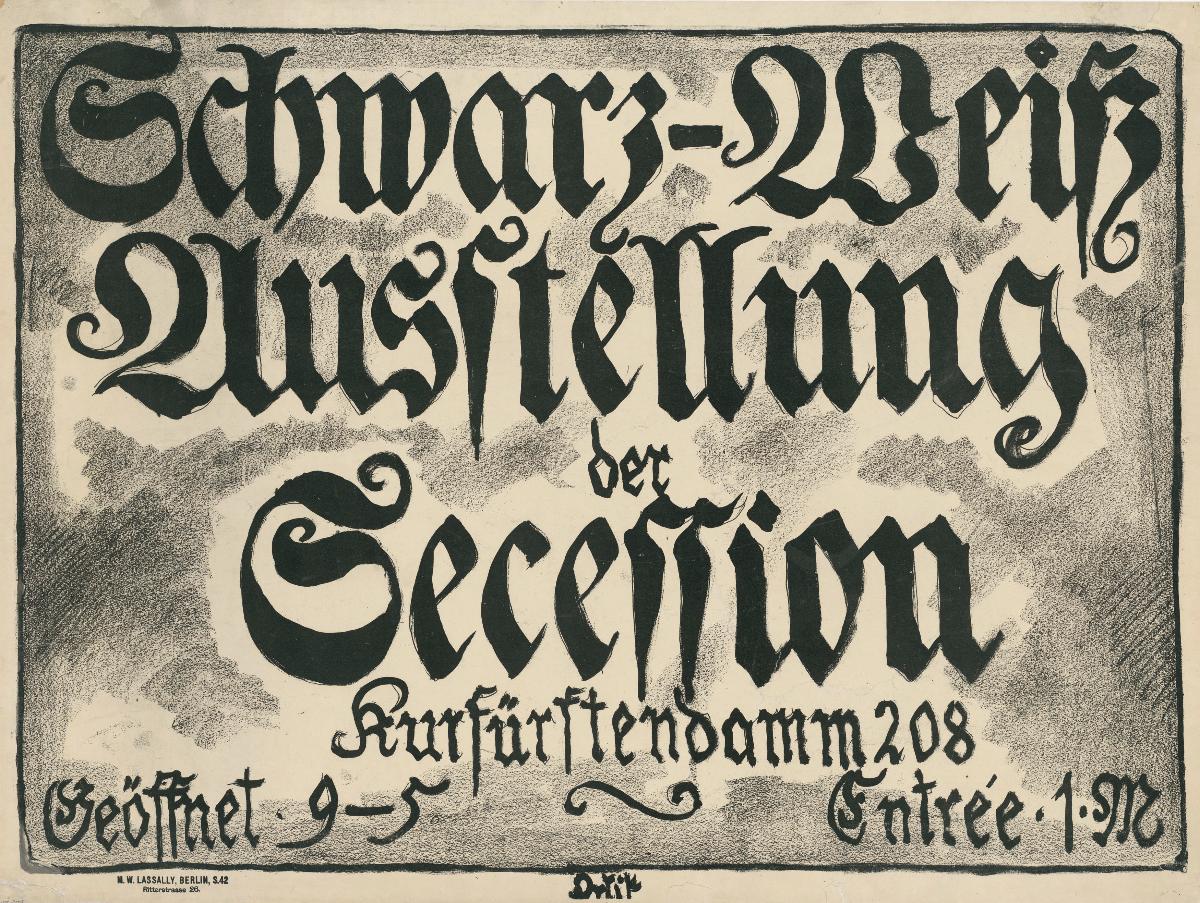 Schwarz-Weiß
Ausstellung
der
Secession
Kurfürstendamm 208
Geöffnet · 9–5
Entrée · 1 · M
M. W. LASSALLY, BERLIN, S.42
Ritterstrasse 26.
Orlik